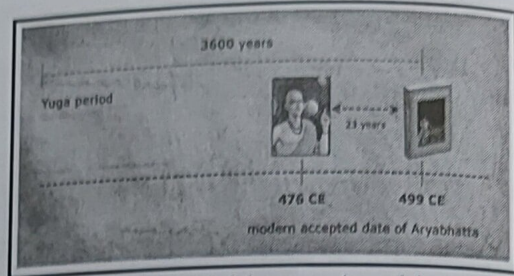 3600 years
Yuga period
23 years
476 CE
499 CE
modern accepted date of Aryabhatta